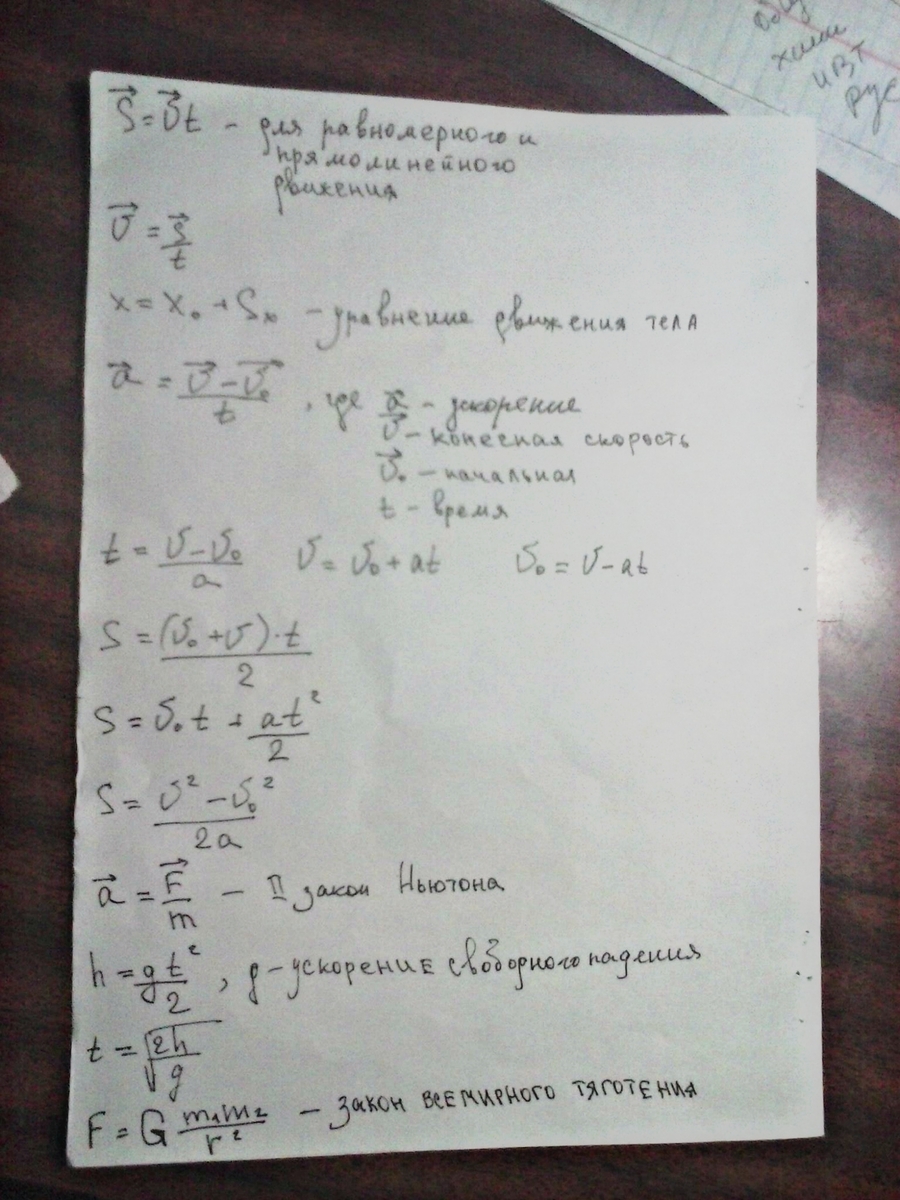 S⃗ = υ⃗t – для равномерного и
прямолинейного
движения
υ⃗ = S⃗/t
x = x₀ + Sₓ – уравнение движения тела
a⃗ = (υ⃗ – υ⃗₀)/t, где a⃗ – ускорение
υ⃗ – конесная скорость
υ⃗₀ – начальная
t – время
t = (υ – υ₀)/a υ = υ₀ + at υ₀ = υ – at
S = ((υ₀ + υ)·t)/2
S = υ₀t + at²/2
S = (υ² – υ₀²)/2a
a⃗ = F⃗/m – II закон Ньютона
h = gt²/2, g – ускорение свободного падения
t = √(2h/g)
F = G m₁m₂/r² – закон всемирного тяготения
хими
ивт
рус